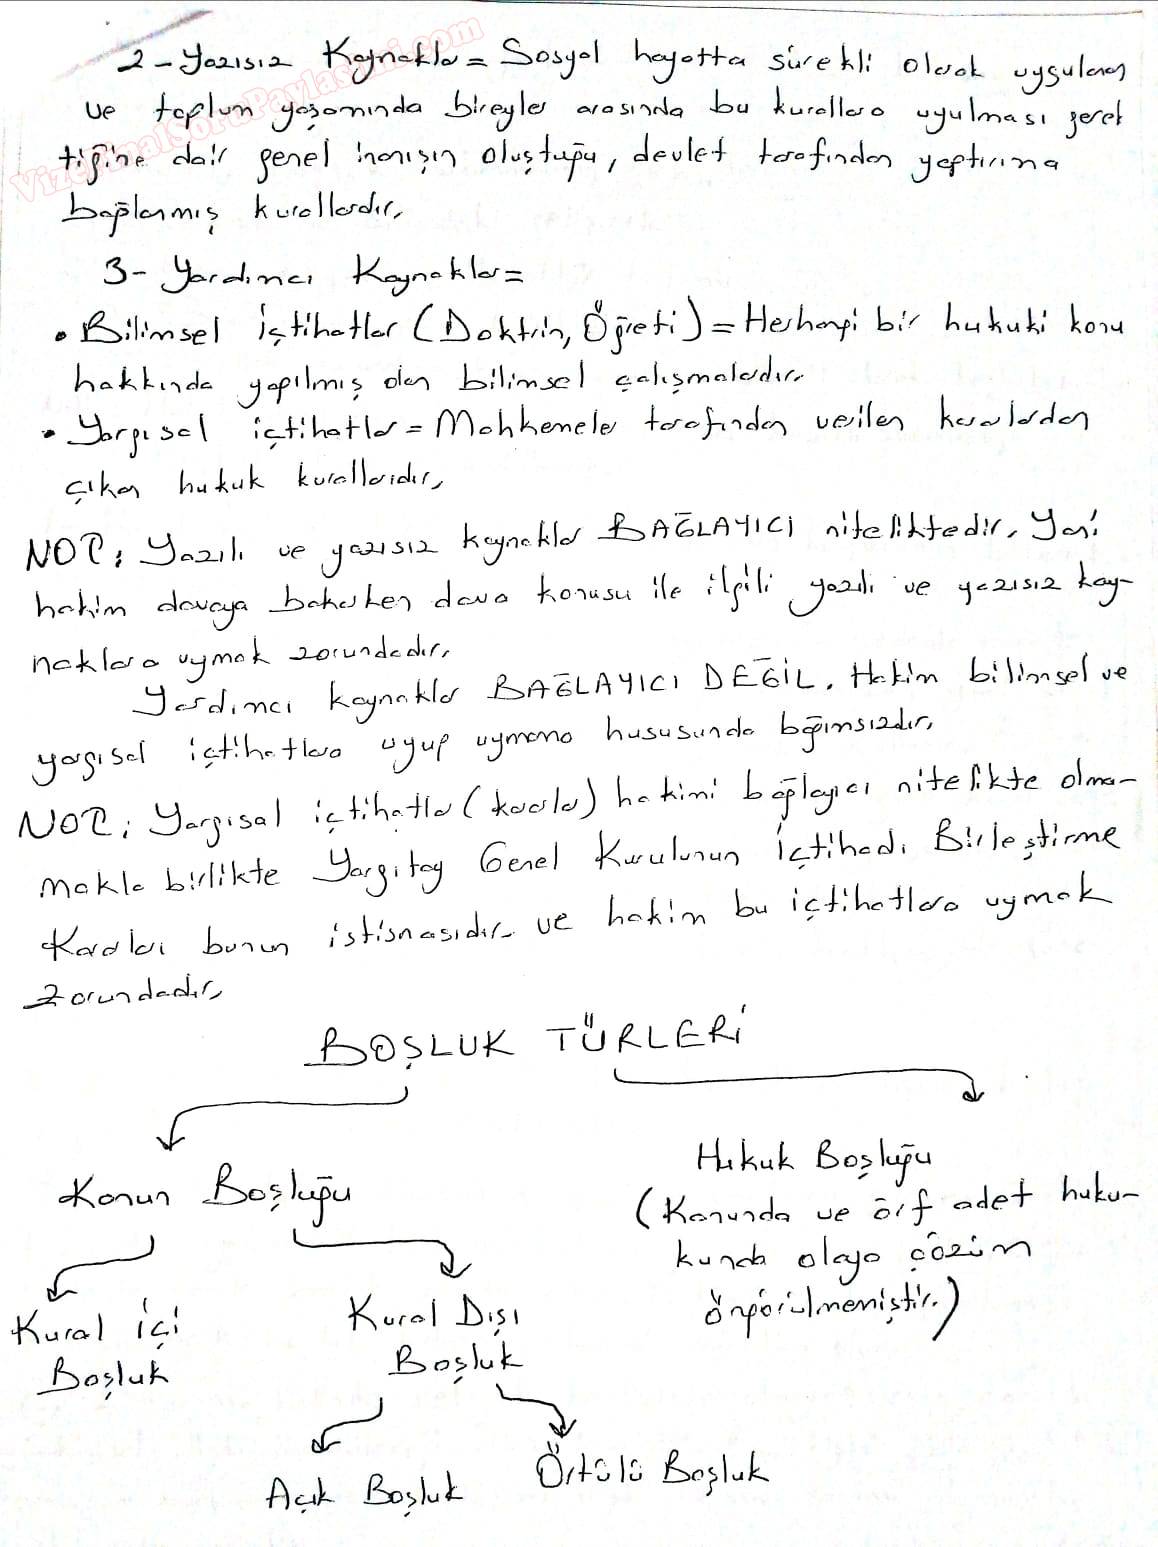 VizeFinalSoruPaylasimi.com
2-Yazısız Kaynaklar = Sosyal hayatta sürekli olarak uygulanan
ve toplum yaşamında bireyler arasında bu kurallara uyulması gerek
tiğine dair genel inanışın oluştuğu, devlet tarafından yaptırıma
bağlanmış kurallardır.
3- Yardımcı Kaynaklar =
• Bilimsel İçtihatlar (Doktrin, Öğreti) = Herhangi bir hukuki konu
hakkında yapılmış olan bilimsel çalışmalardır.
• Yargısal içtihatlar = Mahkemeler tarafından verilen kararlardan
çıkan hukuk kurallarıdır.
NOT: Yazılı ve yazısız kaynaklar BAĞLAYICI niteliktedir. Yani
hakim davaya bakarken dava konusu ile ilgili yazılı ve yazısız kay-
naklara uymak zorundadır.
Yardımcı kaynaklar BAĞLAYICI DEĞİL. Hakim bilimsel ve
yargısal içtihatlara uyup uymama hususunda bağımsızdır.
NOT: Yargısal içtihatlar (kararlar) hakimi bağlayıcı nitelikte olma-
makla birlikte Yargıtay Genel Kurulunun İçtihadı Birleştirme
Kararları bunun istisnasıdır ve hakim bu içtihatlara uymak
zorundadır.
BOŞLUK TÜRLERİ
Kanun Boşluğu
Hukuk Boşluğu
(Kanunda ve örf adet huku-
kunda olaya çözüm
öngörülmemiştir.)
Kural İçi
Boşluk
Kural Dışı
Boşluk
Açık Boşluk
Örtülü Boşluk